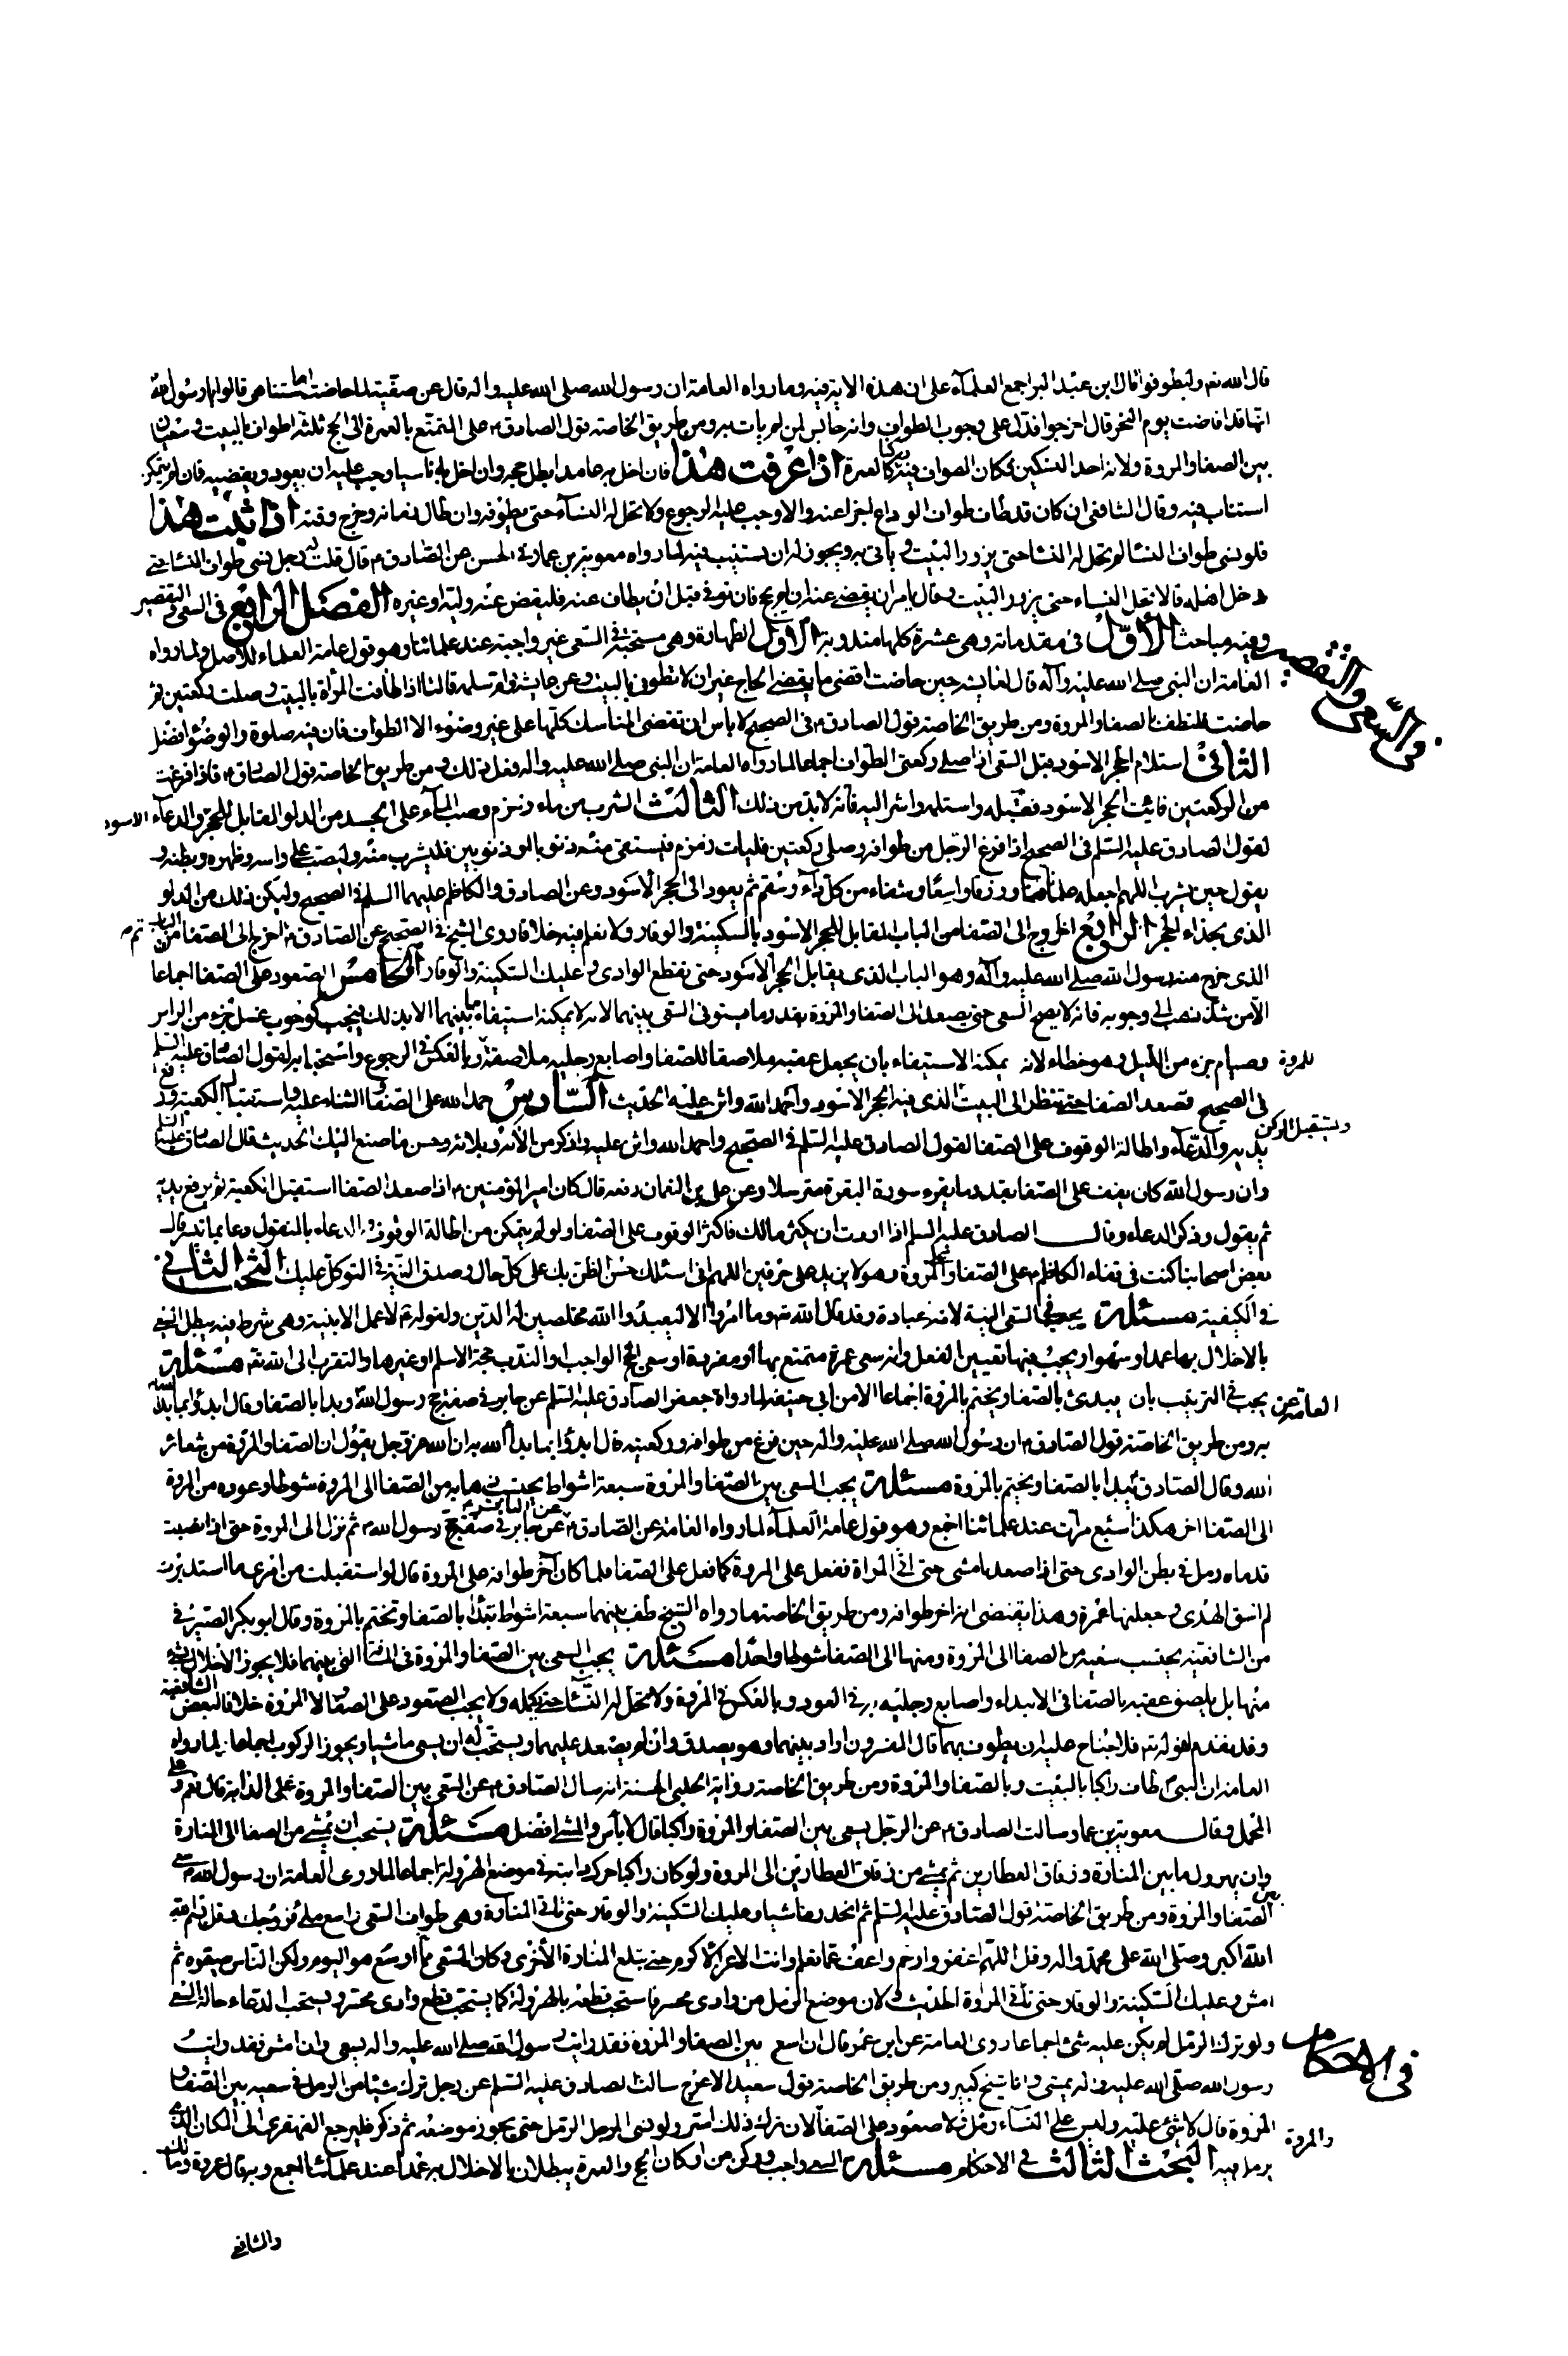 قال الله تعم وليطوفوا قال ابن عبد البر اجمع العلماء على ان هذه الاية فيه وما رواه العامة ان رسول الله صلى الله عليه واله قال عن صفية لما حاضت احابستنا هي قالوا يا رسول الله
انها قد افاضت يوم النحر قال اخرجوا فدل على وجوب الطواف وانه حابس لمن لم يات به ومن طريق الخاصة قول الصادق م على المتمتع بالعمرة الى الحج ثلثة اطواف بالبيت وسعيان
بين الصفا والمروة ولانه احد النسكين فكان الطواف فيه ركنا كالعمرة اذا عرفت هذا فان اخل به عامدا بطل حجه وان اخل به ناسيا وجب عليه ان يعود ويقضيه فان لم يتمكن
استناب فيه وقال الشافعي ان كان قد طاف طواف الوداع اجزا عنه والا وجب عليه الرجوع ولا تحل له النساء حتى يطوفه وان طال زمانه وخرج وقته اذا ثبت هذا
فلو نسي طواف النسا لم تحل له النسا حتى يزور البيت و ياتى به ويجوز له ان يستنيب فيه لما رواه معوية بن عمار في الحسن عن الصادق م قال قلت له رجل نسي طواف النسا حتى
دخل اهله قال لا تحل النساء حتى يزور البيت وقال يامر ان يقضى عنه ان لم يحج فان توفى قبل ان يطاف عنه فليقض عنه وليه او غيره الفصل الرابع في السعى و التقصير
وفيه مباحث الاول في مقدماته وهى عشرة كلها مندوبة الاول الطهارة وهى مستحبة فى السعى غير واجبة عند علمائنا وهو قول عامة العلماء للاصل ولما رواه
العامة ان النبى صلى الله عليه واله قال لعايشه حين حاضت اقضى ما يقضى الحاج غير ان لا تطوفى بالبيت وعن عايشة وام سلمه قالتا اذا طافت المراة بالبيت وصلت ركعتين ثم
حاضت فلتطف بالصفا والمروة ومن طريق الخاصة قول الصادق م فى الصحيح لا باس ان تقضى المناسك كلها على غير وضوء الا الطواف فان فيه صلوة والوضوء افضل
الثانى استلام الحجر الاسود قبل السعى اذا صلى ركعتى الطواف اجماعا لما رواه العامة ان النبى صلى الله عليه واله فعل ذلك ومن طريق الخاصة قول الصادق م فاذا فرغت
من الركعتين فايت الحجر الاسود فقبله واستلمه واشر اليه فانه لا بد من ذلك الثالث الشرب من ماء زمزم وصب الماء على الجسد من الدلو المقابل للحجر والدعاء الاسود
لقول الصادق عليه السلم فى الصحيح اذا فرغ الرجل من طوافه وصلى ركعتين فليات زمزم فيستقى منه ذنوبا او ذنوبين فليشرب منه وليصب على راسه وظهره وبطنه و
يقول حين يشرب اللهم اجعله علما نافعا ورزقا واسعا وشفاء من كل داء وسقم ثم يعود الى الحجر الاسود وعن الصادق والكاظم عليهما السلم فى الصحيح وليكن ذلك من الدلو
الذى بحذاء الحجر الرابع الخروج الى الصفا من الباب المقابل للحجر الاسود بالسكينة والوقار ولا نعلم فيه خلافا روى الشيخ فى الصحيح عن الصادق م اخرج الى الصفا من الباب
الذى خرج منه رسول الله صلى الله عليه واله وهو الباب الذى يقابل الحجر الاسود حتى تقطع الوادى وعليك السكينة والوقار الخامس الصعود على الصفا اجماعا
الا من شذ نصب الى وجوبه فانه لا يصح السعى حتى يصعد الى الصفا والمروة بقدر ما يستوفى السعى بينهما لانه لا يمكنه استيفاء ما بينهما الا بذلك فيجب كوجوب غسل جزء من الراس
وصيام جزء من الليل وهو خطاء لانه يمكنه الاستيفاء بان يجعل عقبه ملاصقا للصفا واصابع رجليه ملاصقة للمروة وبالعكس فى الرجوع واستحبابه لقول الصادق عليه السلم
فى الصحيح فصعد الصفا حتى تنظر الى البيت ويستقبل الركن الذى فيه الحجر الاسود واحمد الله واثن عليه الحديث السادس حمد الله على الصفا والثناء عليه واستقبال الكعبة ورفع
يديه والدعاء واطالة الوقوف على الصفا لقول الصادق عليه السلم فى الصحيح واحمد الله واثن عليه واذكر من الآئه وبلائه وحسن ما صنع اليك الحديث قال الصادق عليه السلم
وان رسول الله كان يقف على الصفا بقدر ما يقرء سورة البقرة مترسلا وعن على بن النعمان رفعه قال كان امير المؤمنين م اذا صعد الصفا استقبل الكعبة ثم يرفع يديه
ثم يقول وذكر الدعاء وقال الصادق عليه السلم اذا اردت ان يكثر مالك فاكثر الوقوف على الصفا ولو لم يتمكن من اطالة الوقوف والدعاء بالمنقول دعا بما تيسر قال
بعض اصحابنا كنت فى قفاء الكاظم م على الصفا او المروة وهو لا يزيد على حرفين اللهم انى اسئلك حسن الظن بك على كل حال وصدق النية فى التوكل عليك البحث الثانى
فى الكيفية مسئلة يجب فى السعى النية لانه عبادة وقد قال الله تم وما امروا الا ليعبدوا الله مخلصين له الدين ولقوله م لا عمل الا بنية وهى شرط فيه يبطل السعى
بالاخلال بها عمدا وسهوا ويجب فيها تعيين الفعل وانه سعى عمرة متمتع بها او مفردة او سعى الحج الواجب او الندب حجة الاسلم او غيرها والتقرب الى الله تم مسئلة
يجب فى الترتيب بان يبدئ بالصفا ويختم بالمروة اجماعا الا من ابى حنيفة لما رواه العامة عن جعفر الصادق عليه السلم عن جابر فى صفة حج رسول الله وبدا بالصفا وقال ابدؤا بما بدا الله
به ومن طريق الخاصة قول الصادق م ان رسول الله صلى الله عليه واله حين فرغ من طوافه وركعتيه قال ابدؤا بما بدا الله به ان الله عز وجل يقول ان الصفا والمروة من شعائر
الله وقال الصادق م تبدا بالصفا وتختم بالمروة مسئلة يجب السعى بين الصفا والمروة سبعة اشواط يحتسب ذهابه من الصفا الى المروة شوطا وعوده من المروة
الى الصفا اخر هكذا سبع مرات عند علمائنا اجمع وهو قول عامة العلماء لما رواه العامة عن الصادق م عن الباقر م عن جابر فى صفة حج رسول الله م ثم نزل الى المروة حتى اذا نصبت
قدماه رمل فى بطن الوادى حتى اذا صعدنا مشى حتى اتى المراة ففعل على المروة كما فعل على الصفا فلما كان آخر طوافه على المروة قال لو استقبلت من امرى ما استدبرت
لم اسق الهدى وجعلتها عمرة وهذا يقتضى انه اخر طوافه ومن طريق الخاصة ما رواه الشيخ طف بينهما سبعة اشواط تبدا بالصفا وتختم بالمروة وقال ابو بكر الصيرفى
من الشافعية يحتسب سعيه من الصفا الى المروة ومنها الى الصفا شوطا واحدا مسئلة يجب السعى بين الصفا والمروة فى المسافة التى بينهما فلا يجوز الاخلال بشئ
منها بل يلصق عقبه بالصفا فى الابتداء واصابع رجليه به فى العود وبالعكس فى المروة ولا تحل له النسا حتى يكمله ولا يجب الصعود على الصفا ولا المروة خلافا لبعض الشافعية
وقد تقدم لقوله تم فلا جناح عليه ان يطوف بهما قال المفسرون اراد بينهما وهو يصدق وان لم يصعد عليهما ويستحب له ان يسعى ماشيا ويجوز الركوب اجماعا لما رواه
العامة ان النبى م طاف راكبا بالبيت وبالصفا والمروة ومن طريق الخاصة رواية الحلبى الحسنة انه سال الصادق م عن السعى بين الصفا والمروة على الدابة قال نعم وعلى
المحمل وقال معوية بن عمار سالت الصادق م عن الرجل يسعى بين الصفا والمروة راكبا قال لا باس والمشى افضل مسئلة يستحب ان يمشى من الصفا الى المنارة
وان يهرول ما بين المنارة وزقاق العطارين ثم يمشى من زقاق العطارين الى المروة ولو كان راكبا حرك دابته فى موضع الهرولة اجماعا لما روى العامة ان رسول الله م سعى
بين الصفا والمروة ومن طريق الخاصة قول الصادق عليه السلم ثم انحدر ماشيا وعليك السكينة والوقار حتى تاتى المنارة وهى طرف السعى فاسع ملء فروجك وقل بسم الله
الله اكبر وصلى الله على محمد واله وقل اللهم اغفر وارحم واعف عما تعلم وانت الاعز الاكرم حتى تبلغ المنارة الاخرى وكان المسعى اوسع مما هو اليوم ولكن الناس ضيقوه ثم
امش وعليك السكينة والوقار حتى تاتى المروة الحديث ولان موضع الرمل من وادى محسر فاستحب قطعه بالهرولة كما يستحب قطع وادى محسر ويستحب الدعاء حالة السعى
ولو ترك الرمل لم يكن عليه شئ اجماعا روى العامة عن ابن عمر قال ان اسع بين الصفا والمروة فقد رايت رسول الله صلى الله عليه واله يسعى وان امش فقد رايت
رسول الله صلى الله عليه واله يمشى وانا شيخ كبير ومن طريق الخاصة قول سعيد الاعرج سالت الصادق عليه السلم عن رجل ترك شيئا من الرمل فى سعيه بين الصفا و
المروة قال لا شئ عليه وليس على النساء رمل ولا صعود على الصفا والمروة لان ترك ذلك استر ولو نسى الرجل الرمل حتى يجوز موضعه ثم ذكر فليرجع القهقرى الى المكان الذى
يرمل فيه البحث الثالث فى الاحكام مسئلة السعى واجب وركن من اركان الحج والعمرة يبطلان بالاخلال به عمدا عند علمائنا اجمع وبه قال عروة ومالك
والشافعى
فى السعى والتقصير
فى الاحكام